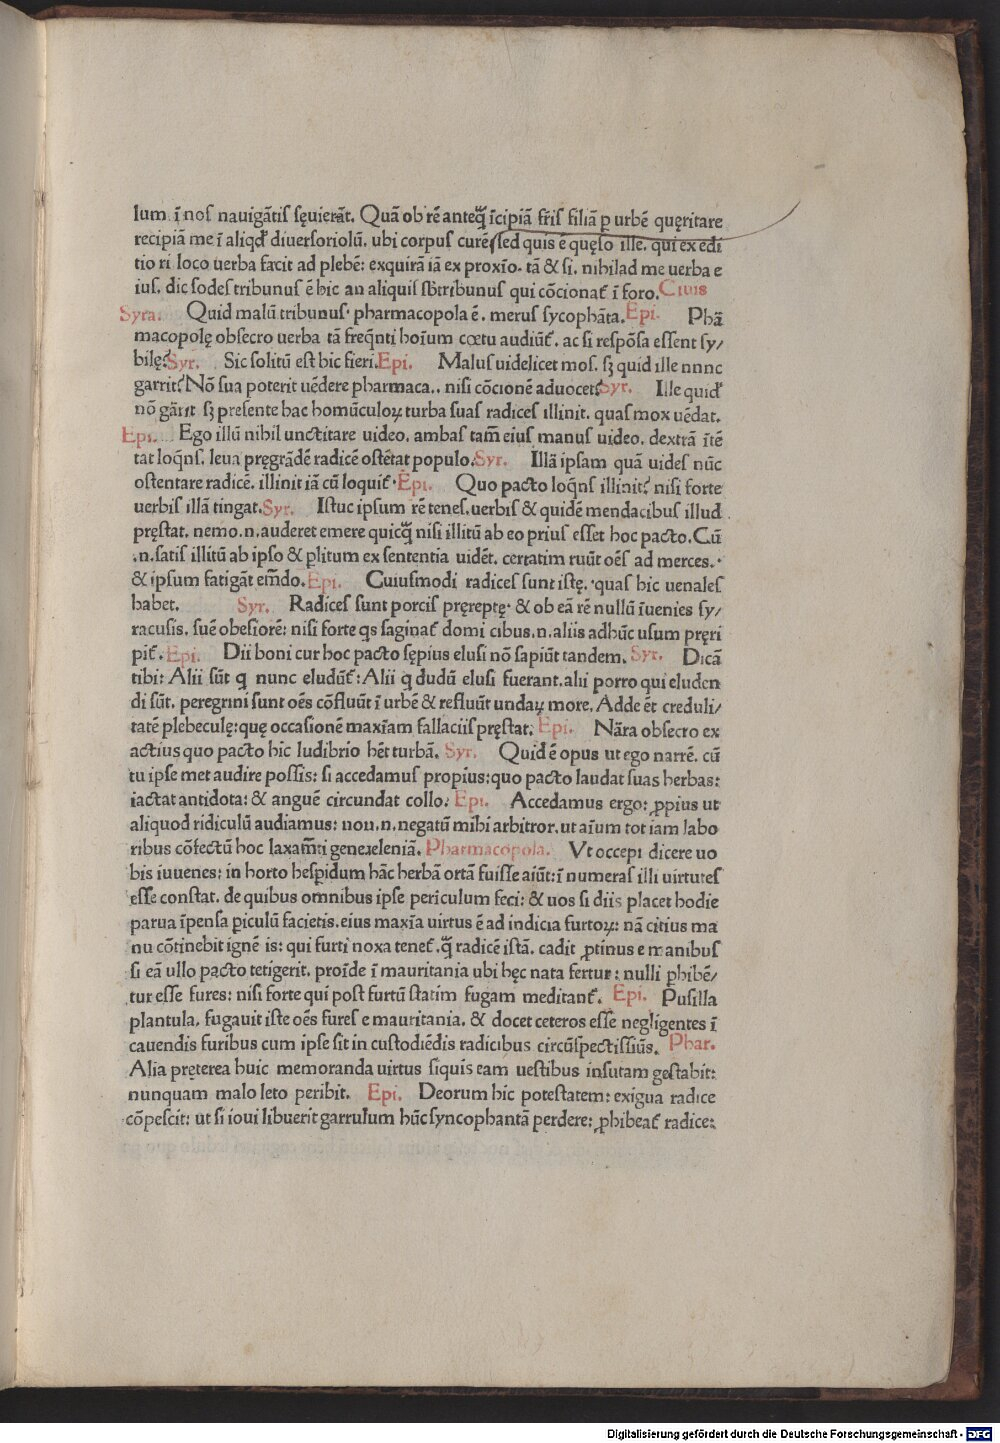 lum. ī nos nauigātis sęuierāt. Quā ob rē anteq̄ īcipiā fr̄is filiā ꝑ urbē quęritare
recipiā me ī aliqđ diuersoriolū. ubi corpus curē sed quis ē quęso ille. qui ex edi
tio ri loco uerba facit ad plebē: exquirā iā ex proxīo. tā & si. nihil ad me uerba e
ius. dic sodes tribunus ē hic an aliquis sb̄tribunus qui cōcionat᷑ ī foro. Ciuis
Syra. Quid malū tribunus. pharmacopola ē. merus sycophāta. Epi. Phā
macopolę obsecro uerba tā freq̄nti hoīum cœtu audiūt᷑. ac si respōsa essent sy/
bilę? Syr. Sic solitū est hic fieri. Epi. Malus uidelicet mos. sꝫ quid ille nnnc
garrit? Nō sua poterit uēdere pharmaca.. nisi cōcionē aduocet? Syr. Ille quiđ
nō gārit sꝫ presente hac homūculoꝝ turba suas radices illinit. quas mox uēdat.
Epi. Ego illū nihil unctitare uideo. ambas tam̄ eius manus uideo. dextrā itē
tat loq̄ns. leua pręgrādē radicē ostētat populo. Syr. Illā ipsam quā uides nūc
ostentare radicē. illinit iā cū loquit᷑. Epi. Quo pacto loq̄ns illinit? nisi forte
uerbis illā tingat. Syr. Istuc ipsum rē tenes. uerbis & quidē mendacibus illud
pręstat. nemo .n. auderet emere quicq̄ nisi illitū ab eo prius esset hoc pacto. Cū
.n. satis illitū ab ipso & ꝑlitum ex sententia uidēt. certatim ruūt oēs ad merces..
& ipsum fatigāt em̄do. Epi. Cuiusmodi radices sunt istę. quas hic uenales
habet. Syr. Radices sunt porcis pręreptę. & ob eā rē nullū īuenies sy/
racusis. suē obesiorē: nisi forte qs saginat᷑ domi cibus .n. aliis adhūc usum pręri
pit᷑. Epi. Dii boni cur hoc pacto sępius elusi nō sapiūt tandem. Syr. Dicā
tibi: Alii sūt q nunc eludūt᷑: Alii q dudū elusi fuerant. alii porro qui eluden
di sūt. peregrini sunt oēs cōfluūt ī urbē & refluūt undaꝝ more. Adde ēt creduli/
tatē plebeculę: quę occasionē maxīam fallaciis pręstat. Epi. Nāra obsecro ex
actius quo pacto hic ludibrio hēt turbā. Syr. Quid ē opus ut ego narrē. cū
tu ipse met audire possis: si accedamus propius: quo pacto laudat suas herbas:
iactat antidota: & anguē circundat collo: Epi. Accedamus ergo: ꝓpius ut
aliquod ridiculū audiamus: non .n. negatū mihi arbitror. ut aīum tot iam labo
ribus cōfectū hoc laxam̄ti genere leniā. Pharmacopola. Vt occepi dicere uo
bis iuuenes: in horto hesꝑidum hāc herbā ortā fuisse aiūt: ī numeras illi uirtutes
esse constat. de quibus omnibus ipse periculum feci: & uos si diis placet hodie
parua īpensa ꝑiculū facietis. eius maxīa uirtus ē ad indicia furtoꝝ: nā citius ma
nu cōtinebit ignē is: qui furti noxa tenet᷑. q̄ radicē istā. cadit ꝓtinus e manibus
si eā ullo pacto tetigerit. proīde ī mauritania ubi hęc nata fertur: nulli ꝓhibē/
tur esse fures: nisi forte qui post furtū statim fugam meditant᷑. Epi. Pusilla
plantula. fugauit iste oēs fures e mauritania. & docet ceteros esse negligentes ī
cauendis furibus cum ipse sit in custodiēdis radicibus circūspectissiūs. Phar.
Alia pręterea huic memoranda uirtus siquis eam uestibus insutam gestabit:
nunquam malo leto peribit. Epi. Deorum hic potestatem: exigua radice
cōpescit: ut si ioui libuerit garrulum hūc syncophantā perdere: ꝓhibeat᷑ radice:
Digitalisierung gefördert durch die Deutsche Forschungsgemeinschaft - DFG